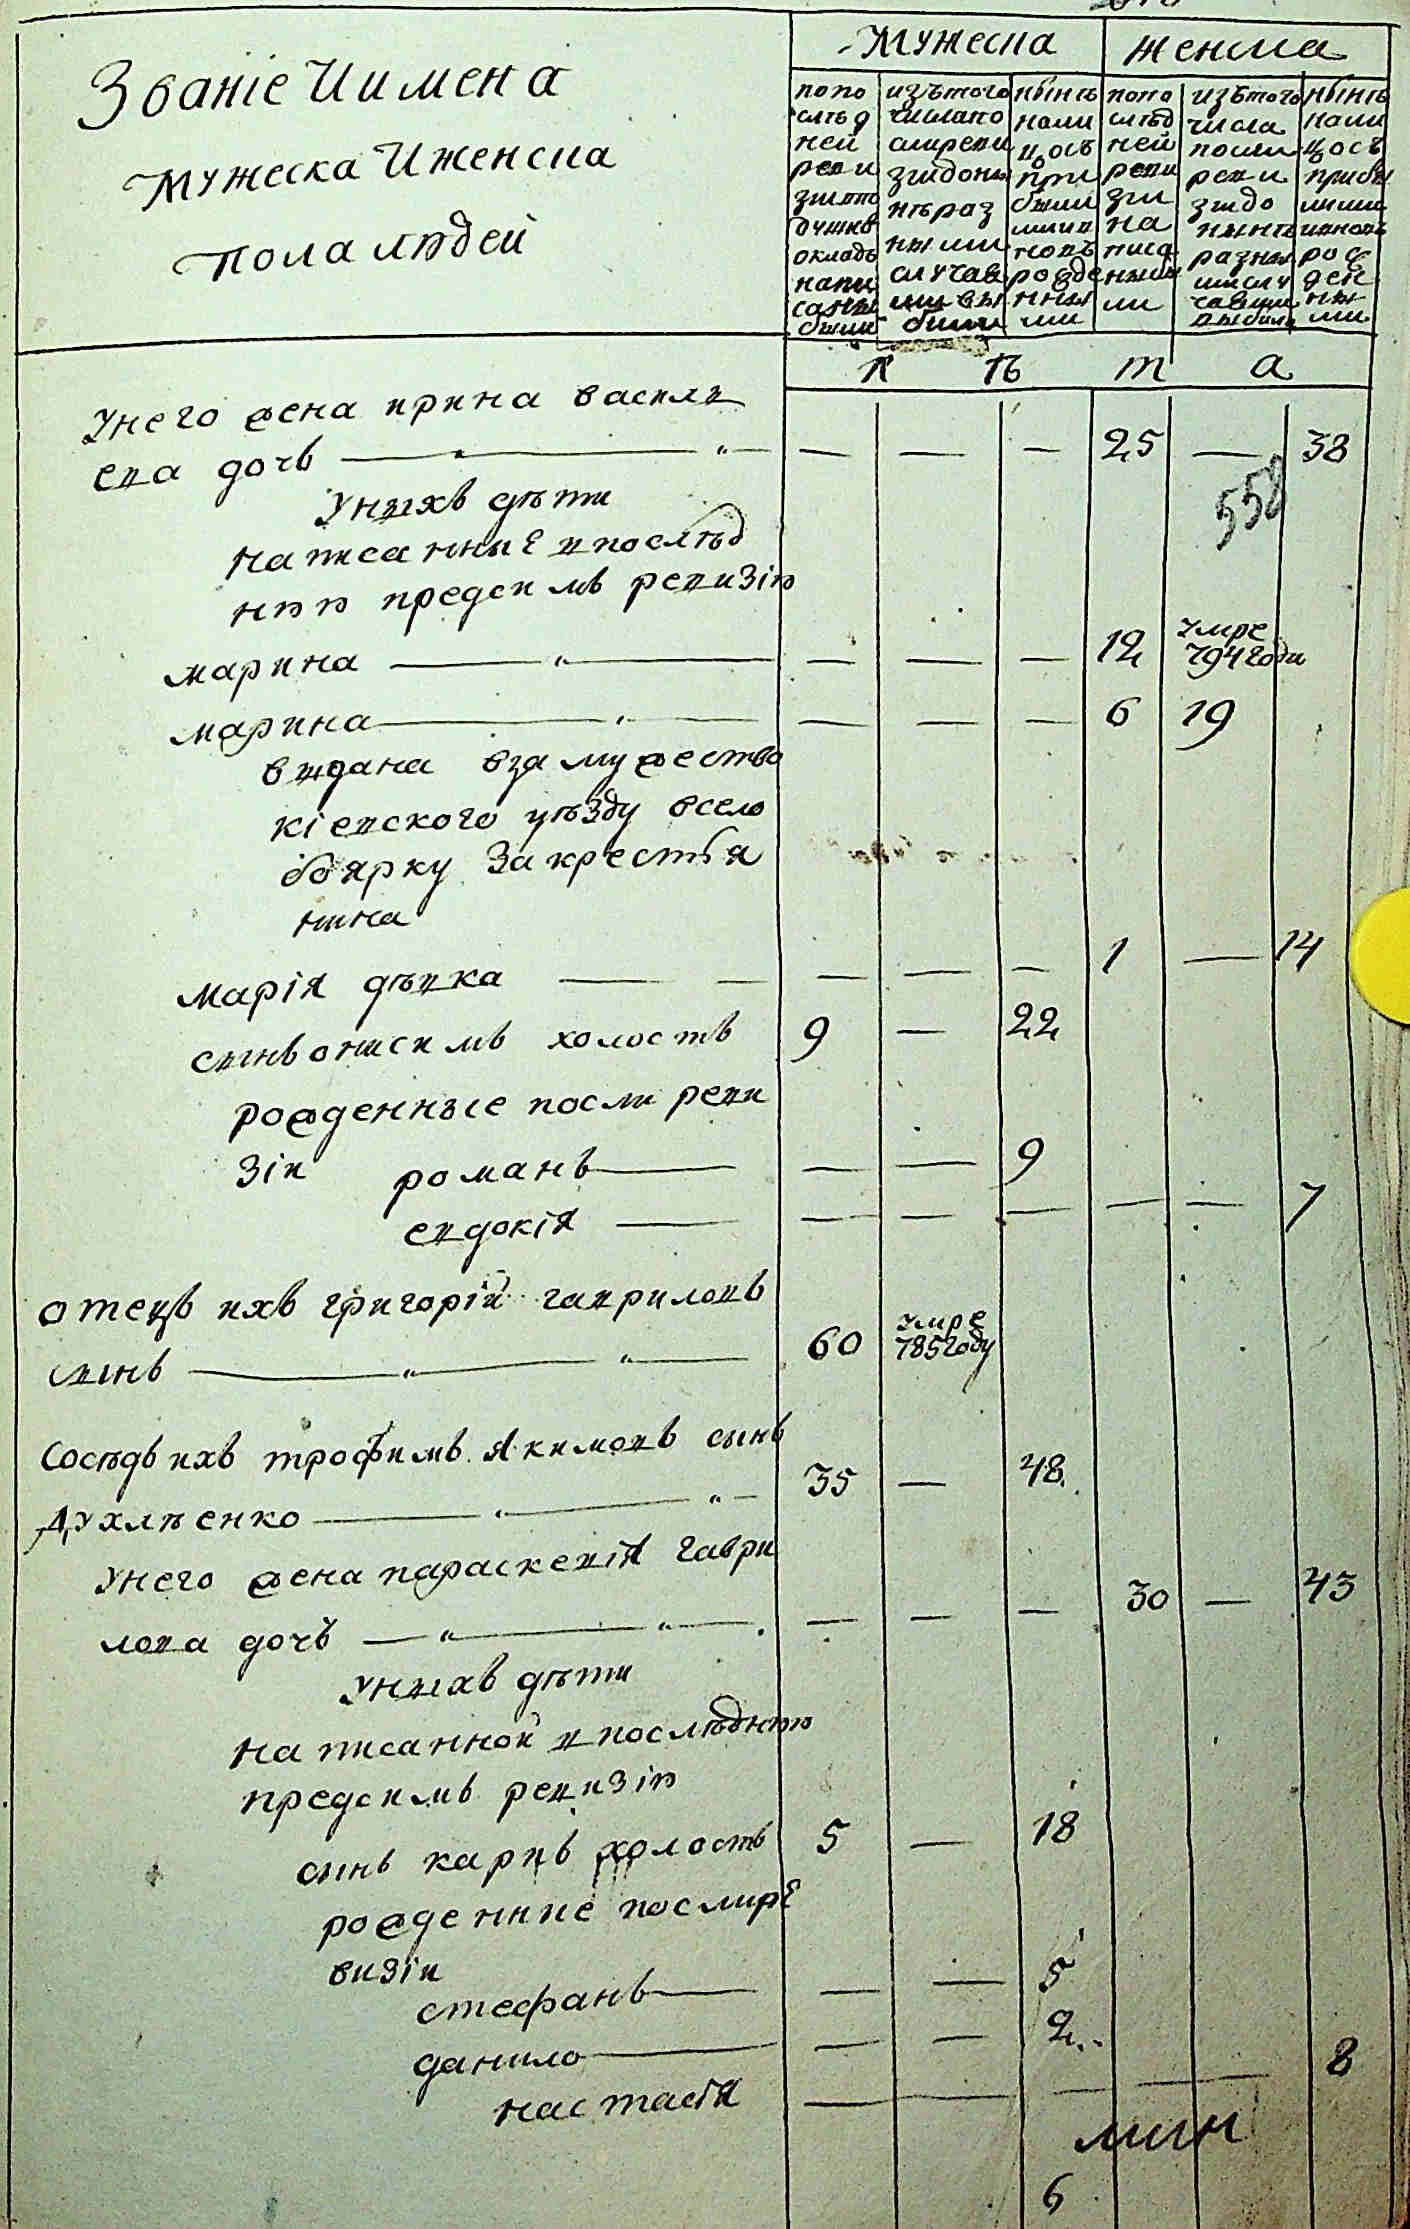 Званіе И имена
мужеска И женска
пола людей
мужеска
женска
попо
слѣд
ней
реви
зіи
окладѣ
напи
саны
были
изътого
числа по
слиреви
зіидоны
нѣ раз
ными
случая
ми вы
были
нынѣ
нали
цосъ
при
были
ми и
новъ
рожде
нны
ми
попо
слѣд
ней
реви
зіи
на
писа
ными
изътого
числа
посли
реви
зіидо
нынѣ
разны
ми слу
чаями
выбыли
нынѣ
нали
цосъ
прибы
лыми
иновъ
рож
ден
ны
ми
л ѣ т а
Унего жена ирина васили
ева дочь — — — 25 — 38
558
Унихъ дѣти
написанные впослѣд
нѣй предсимъ ревизіи
марина — — — 12 умре 794 году
марина — — — 6 19
видана взамужество
кіевского уѣзду вселo
боярку За крестья
нина
марія дѣвка — — — 1 — 14
синъ онисимъ холостъ 9 — 22
рожденные посли реви
зіи романъ — — 9
евдокія — — — — — 7
отецъ ихъ григорій гавриловъ
синъ 60 умре 785 году
Сосѣдъ ихъ трофимъ Якимовъ сынъ
Духлѣенко 35 — 48
Унего жена параскевія гаври
лова дочь — — — 30 — 43
Унихъ дѣти
написанной впослѣднѣй
предсимъ ревизіи
синъ карпъ холостъ 5 — 18
рожденние послире
визіи
стефанъ — — 5
данило — — 2
настасія — — — — — 8
6